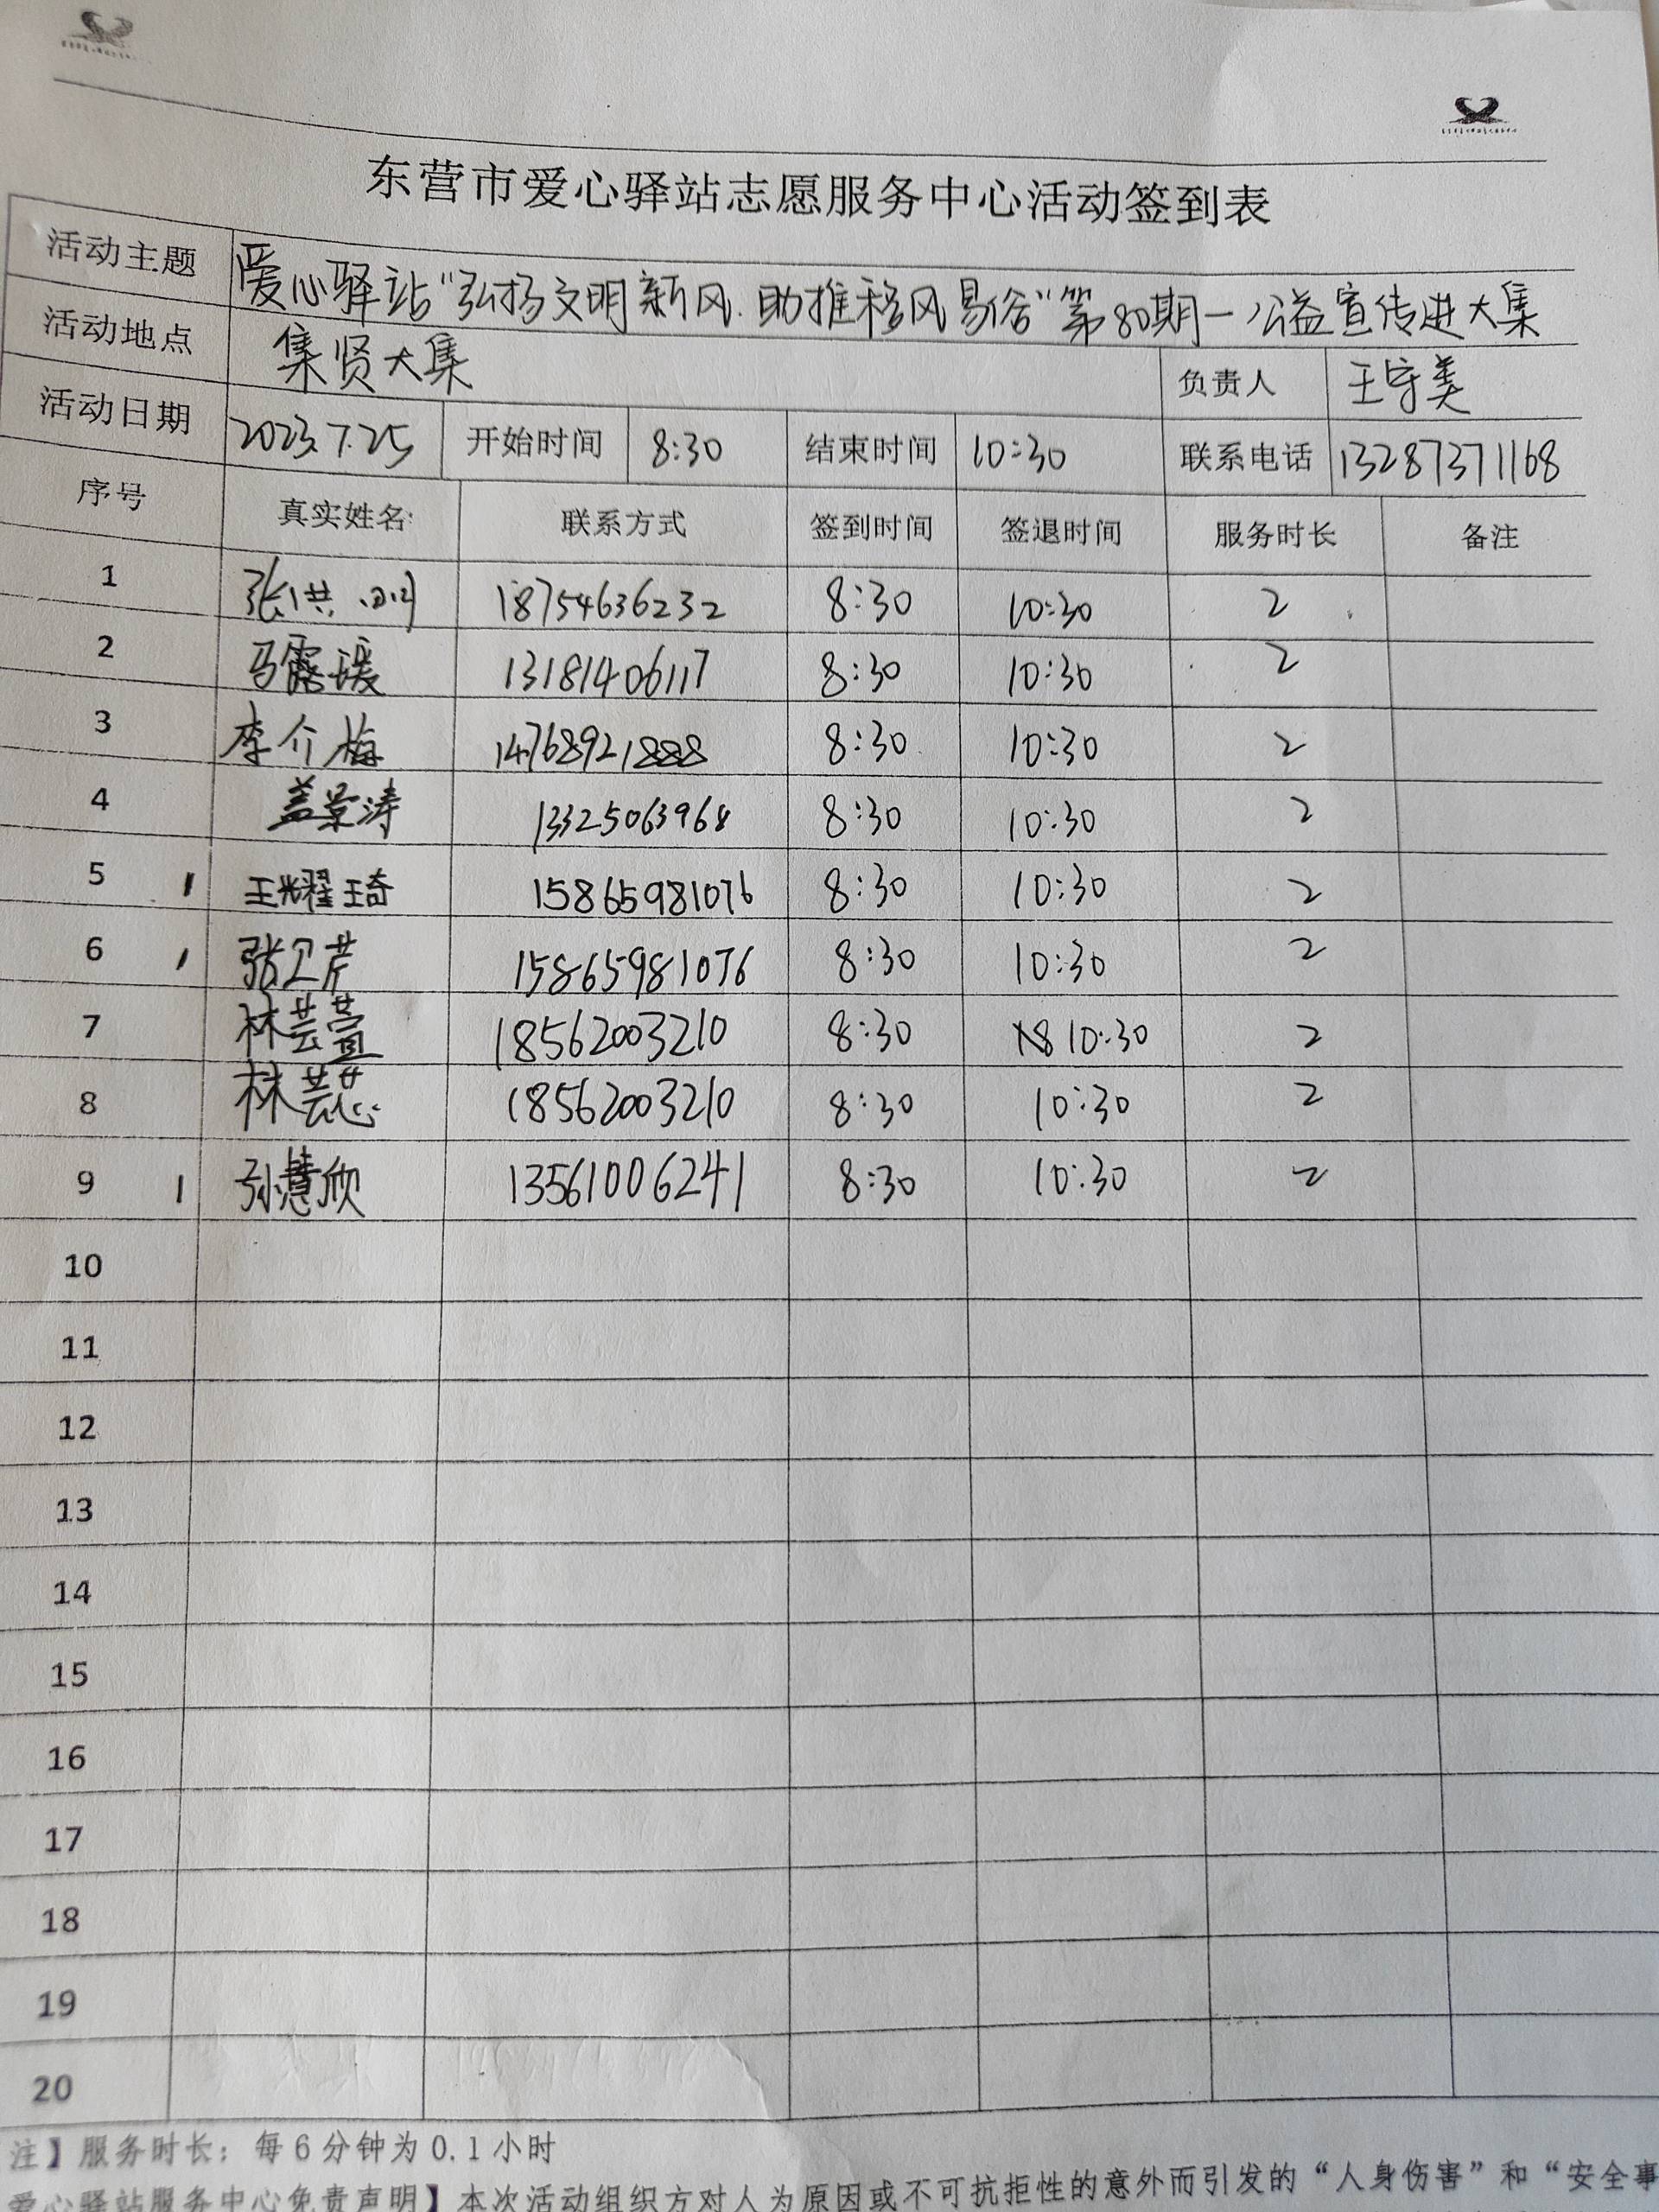 东营市爱心驿站志愿服务中心活动签到表
活动主题 爱心驿站“弘扬文明新风.助推移风易俗”第80期—公益宣传进大集
活动地点 集贤大集 负责人 王守美
活动日期 2023.7.25 开始时间 8:30 结束时间 10:30 联系电话 13287371168
序号 真实姓名 联系方式 签到时间 签退时间 服务时长 备注
1 张洪 18754636232 8:30 10:30 2
2 马露瑗 13181406117 8:30 10:30 2
3 李介梅 14768921888 8:30 10:30 2
4 盖景涛 13325063968 8:30 10:30 2
5 王耀琦 15865981076 8:30 10:30 2
6 张卫芹 15865981076 8:30 10:30 2
7 林芸萱 18562003210 8:30 10:30 2
8 林芸蕊 18562003210 8:30 10:30 2
9 孙慧欣 13561006241 8:30 10:30 2
10
11
12
13
14
15
16
17
18
19
20
注】服务时长：每6分钟为0.1小时
爱心驿站服务中心免责声明】本次活动组织方对人为原因或不可抗拒性的意外而引发的“人身伤害”和“安全事